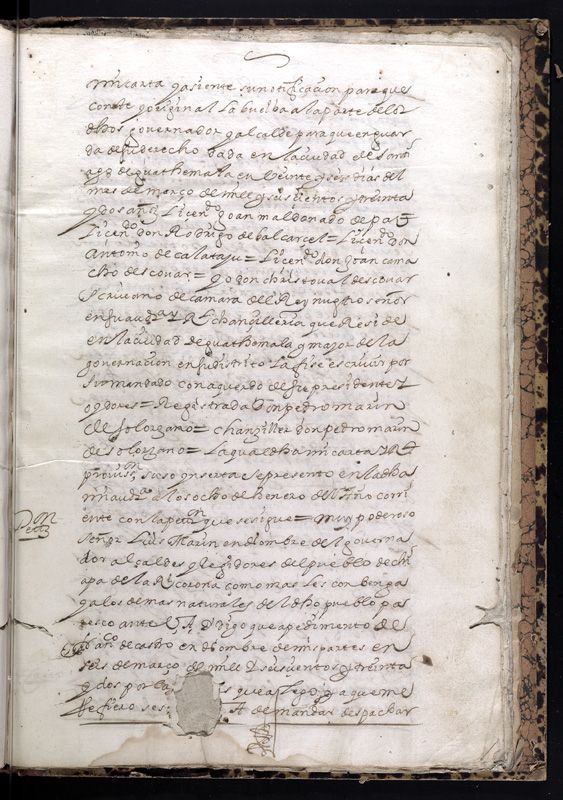 mi carta y asiente su notificacion para que
conste y original la buelba a la parte de los
dhos governador y alcalde para que en guar
da de su derecho dada en la ciudad de Santi
ago de guathemala en veinte y seis dias del
mes de março de mill y seiscientos y treinta
y dos añs Licendo Joan maldonado de paz
Licendo don Rodrigo de balcarcel = Licendo don
Antonio de calatayu = Licendo don Joan cama
cho descovar = yo don christoval descovar
Scrivano de camara del Rey nuestro señor
en su audia y Rl chancilleria que Reside
en la ciudad de guathemala y mayor de la
governacion en su distrito la fise escrivir por
su mandado con aquerdo de su presidente y
oydores = Registrada Don pedro marin
de solorzano = chanziller don pedro marin
de solorzano = La qual dha mi carta y Rl
provison suso ynserta se presento en la dha
mi auda a los ocho de henero del Año corri
ente con la peton que se sigue = muy poderoso
Peton
señor Luis Marin en nombre del governa
dor alcaldes y Regidores del pueblo de chi
apa de la Rl corona como mas les conbenga
y a los demas naturales del dho pueblo pa
resco ante V. A. Digo que a pedimiento de
de castro en nombre de mis partes en
seis de março de mill y seiscientos y treinta
y dos por
que a
de mandar despachar